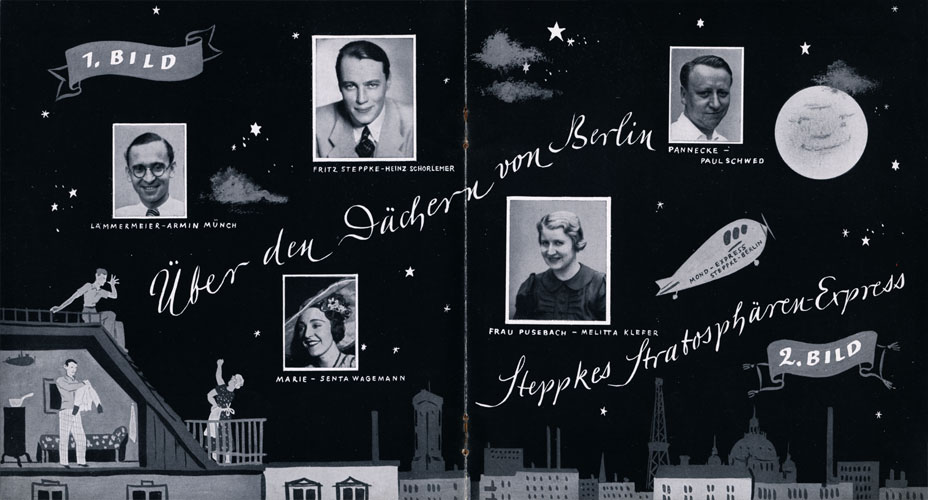 1. BILD
FRITZ STEPPKE-HEINZ SCHORLEMER
LÄMMERMEIER-ARMIN MÜNCH
Über den Dächern von Berlin
MARIE - SENTA WAGEMANN
PANNECKE -
PAUL SCHWED
FRAU PUSEBACH - MELITTA KLEFER
MOND-EXPRESS
STEPPKE-BERLIN
Steppkes Stratosphären-Express
2. BILD